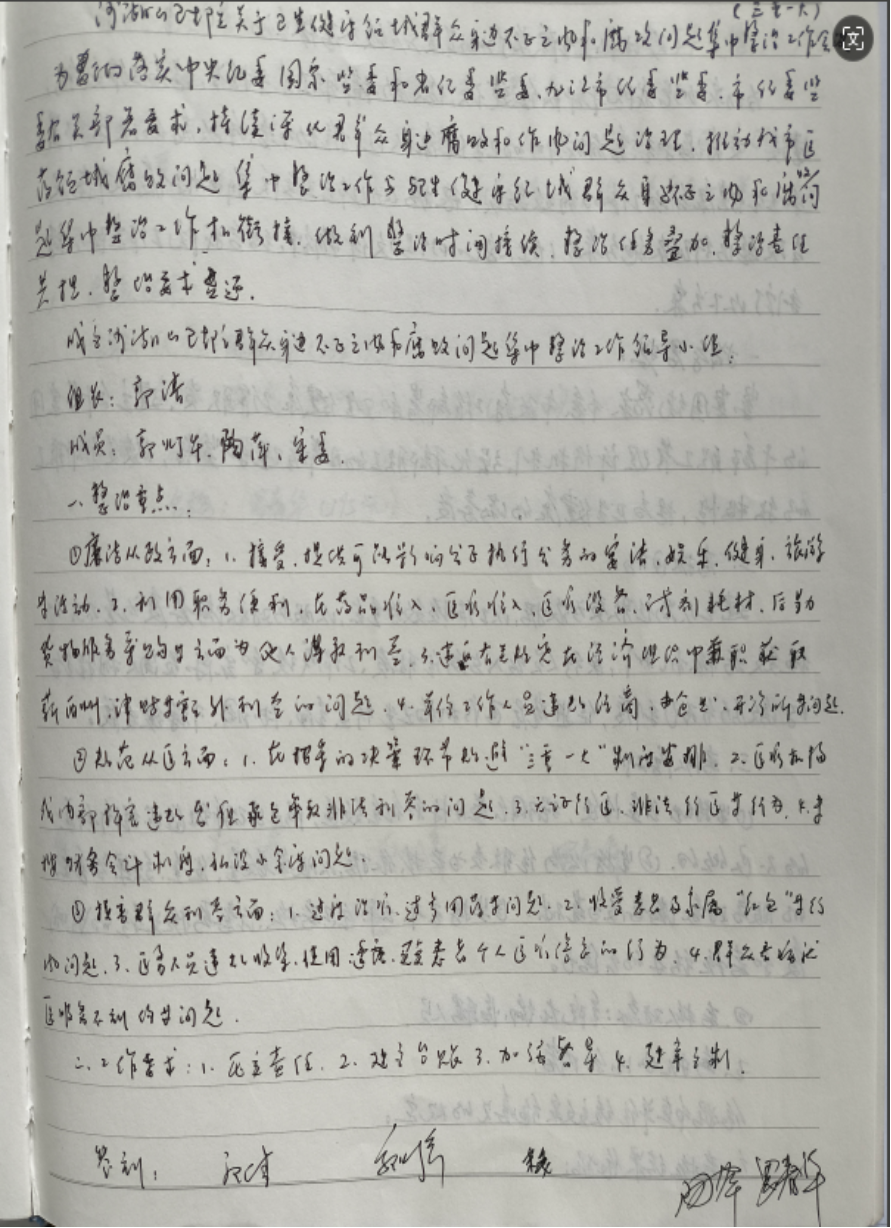 (三重一大)
关于卫生健康领域群众身边不正之风和腐败问题集中整治工作会
为贯彻落实中央纪委国家监委和省纪委监委、九江市纪委监委、市纪委监
委有关部署要求，持续深化群众身边腐败和作风问题治理，推动我市医
药领域腐败问题集中整治工作与卫生健康领域群众身边不正之风和腐败问
题集中整治工作相衔接，做到整治时间接续、整治任务叠加、整治责任
共担、整治要求
成立 群众身边不正之风和腐败问题集中整治工作领导小组：
组长：郭涛
成员：郭 、陶萍、
一、整治重点：
①廉洁从政方面：1. 接受、提供可能影响公正执行公务的宴请、娱乐、健身、旅游
等活动。2. 利用职务便利，在药品收入、医疗收入、医疗设备、试剂耗材、后勤
货物服务 等方面为他人谋取利益。3. 违反有关规定在经济组织中兼职获取
薪酬、津贴 额外利益的问题。4. 单位工作人员违规经商、办企业、开诊所等问题。
②规范从医方面：1. 在 的决策环节规避“三重一大”制度安排。2. 医疗机构
或内部科室违规出租承包牟取非法利益的问题。3. 无证行医、非法行医等行为。4.
财务会计制度，私设小金库问题。
③损害群众利益方面：1. 过度治疗、过 用药等问题。2. 收受患者及亲属“红包”等行
为问题。3. 医务人员违规收集、使用、 患者个人医疗信息的行为。4. 群众
医服务不到位等问题。
二、工作要求：1. 压实责任。2. 建立台账 3. 加强 4. 建章立制。
签到：